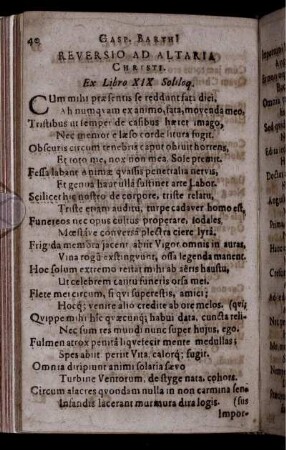 40 GASP. BARTHI
REVERSIO AD ALTARIA
CHRISTI.
Ex Libro XIX Soliloq.
CUm mihi præsentis se reddunt fata diei,
Ah nunquam ex animo, fata, movenda meo,
Tristibus ut semper de casibus hæret imago,
Nec memor è læso corde litura fugit.
Obscuris circum tenebris caput obruit horrens,
Et toto me, nox non mea. Sole premit.
Fessa labant animæ quassis penetralia nervis,
Et genua haut ulla sustinet arte labor.
Scilicet hîc nostro de corpore, triste relatu,
Triste etiam auditu, turpe cadaver homo est,
Funereos nec opus cultus properare, sodales,
Mœstave conversâ plectra ciere lyrâ,
Frigida membra jacent abiit Vigor omnis in auras,
Vina rogũ exstingvunt, ossa legenda manent.
Hoc solum extremo reitat mihi ab aëris haustu,
Ut celebrem cantu funeris orsa mei.
Flete mei circum, si qvi superestis, amici;
Hocq; venite alio credite ab ore melos. (qvi;
Qvippe mihi hîc qvæcunq; habui data cuncta reli-
Nec sum res mundi nunc super hujus, ego.
Fulmen atrox penitâ liqvefecit mente medullas;
Spes abiit periit Vita. calorq; fugit.
Omnia diripiunt animi solaria sævo
Turbine Ventorum, de styge nata, cohors.
Circum alacres qvondam nulla in non carmina sen-
Infandis lacerant murmura dira logis. (sus
Impor-